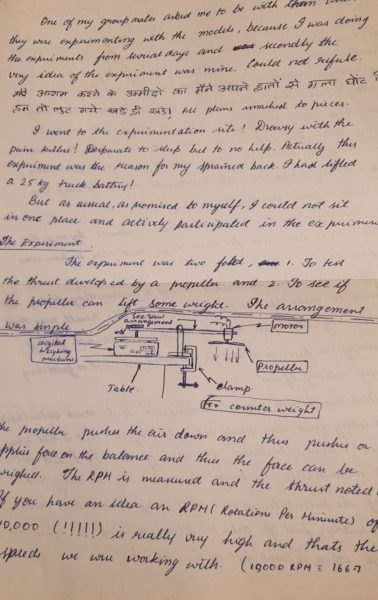 One of my groupmates asked me to be with them when
they were experimenting with the models, because I was doing
the experiments from several days and secondly the
very idea of the experiment was mine. Could not refuse.
मेरे आराम करने के उम्मीदो का मैंने अपने हातों से गला घोंट
हम तो लुट गये खडे ही खडे! All plans smashed to pieces.
I went to the experimentation site! Drowsy with the
pain killers! Desparate to sleep but to no help. Actually this
experiment was the reason for my sprained back. I had lifted
a 25 kg truck battery!
But as usual, as promised to myself, I could not sit
in one place and actively participated in the experiment
The Experiment
The experiment was two fold, 1. To test
the thrust developed by a propeller and 2. To see if
the propeller can lift some weight. The arrangement
was simple
See Saw
arrangement
motor
digital
weighing
machine
Propeller
Table
clamp
counter weight
the propeller pushes the air down and thus pushes or
applies force on the balance and thus the force can be
weighed. The RPM is measured and the thrust noted
If you have an idea an RPM (Rotations Per Minute) of
10,000 (!!!!!) is really very high and thats the
speeds we were working with. (10000 RPM = 1667